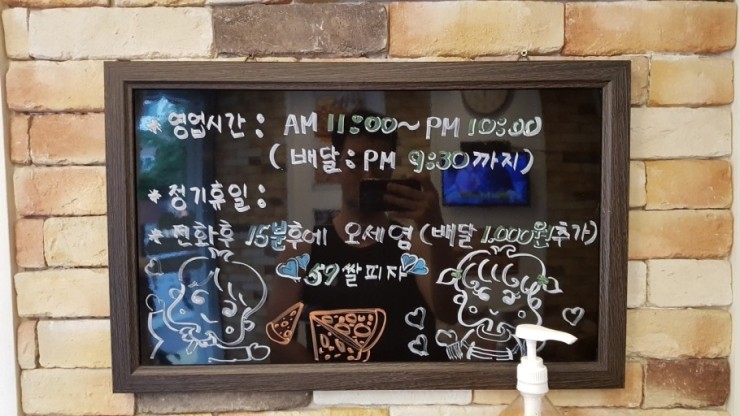 * 영업시간 : AM 11:00~PM 10:00
( 배달 : PM 9:30까지)
* 정기휴일 :
* 전화후 15분후에 오세염 (배달 1.000원추가)
59쌀피자